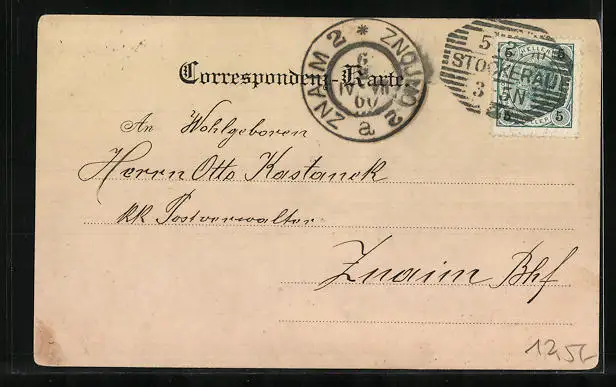 Correspondenz-Karte.
ZNAIM 2 * ZNOJMO 2
a
STOCKERAU
5 HELLER 5
5 5
An Wohlgeboren
Herrn Otto Kastanek
kk Postverwalter
Znaim Bhf